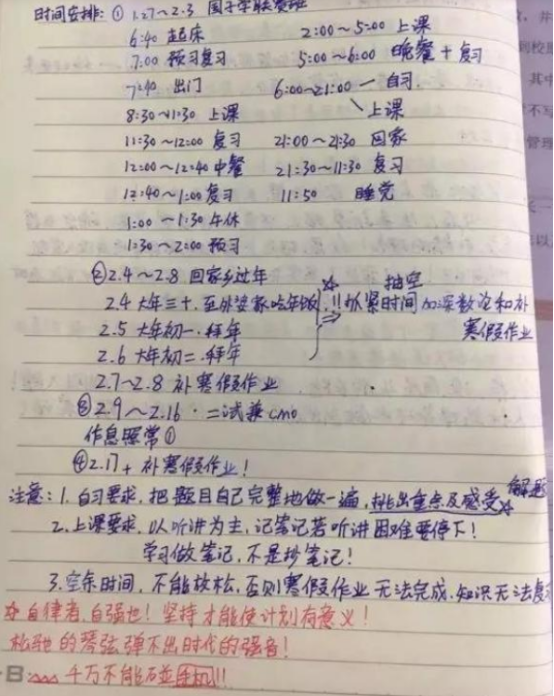 时间安排: ① 1.27~2.3 国子学联赛班
6:40 起床 2:00~5:00 上课
7:00 预习复习 5:00~6:00 晚餐+复习
7:40 出门 6:00~21:00 一 自习
8:30~11:30 上课 上课
11:30~12:00 复习 21:00~21:30 回家
12:00~12:40 中餐 21:30~11:30 复习
12:40~1:00 复习 11:50 睡觉
1:00~1:30 午休
1:30~2:00 预习
②2.4~2.8 回家乡过年 抽空
2.4 大年三十.至外婆家吃年饭 !! 抓紧时间加深数论和补
2.5 大年初一.拜年 寒假作业
2.6 大年初二.拜年
2.7~2.8 补寒假作业
③2.9~2.16. 二试兼cmo
作息照常①
④2.17+ 补寒假作业!
注意: 1. 自习要求,把题目自己完整地做一遍,挑出重点及感受 解题
2. 上课要求,以听讲为主,记笔记若听讲困难要停下!
学习做笔记,不是抄笔记!
3. 空余时间,不能放松,否则寒假作业无法完成.知识无法复
自律者,自强也! 坚持才能使计划有意义!
松弛的琴弦弹不出时代的强音!
千万不能碰手机!!
管理
其中